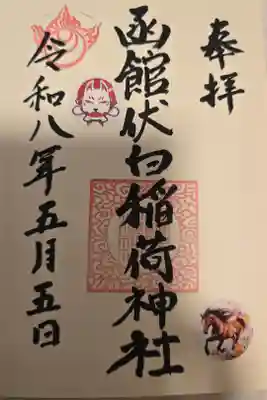 奉拝
函館伏白稲荷神社
令和八年五月五日